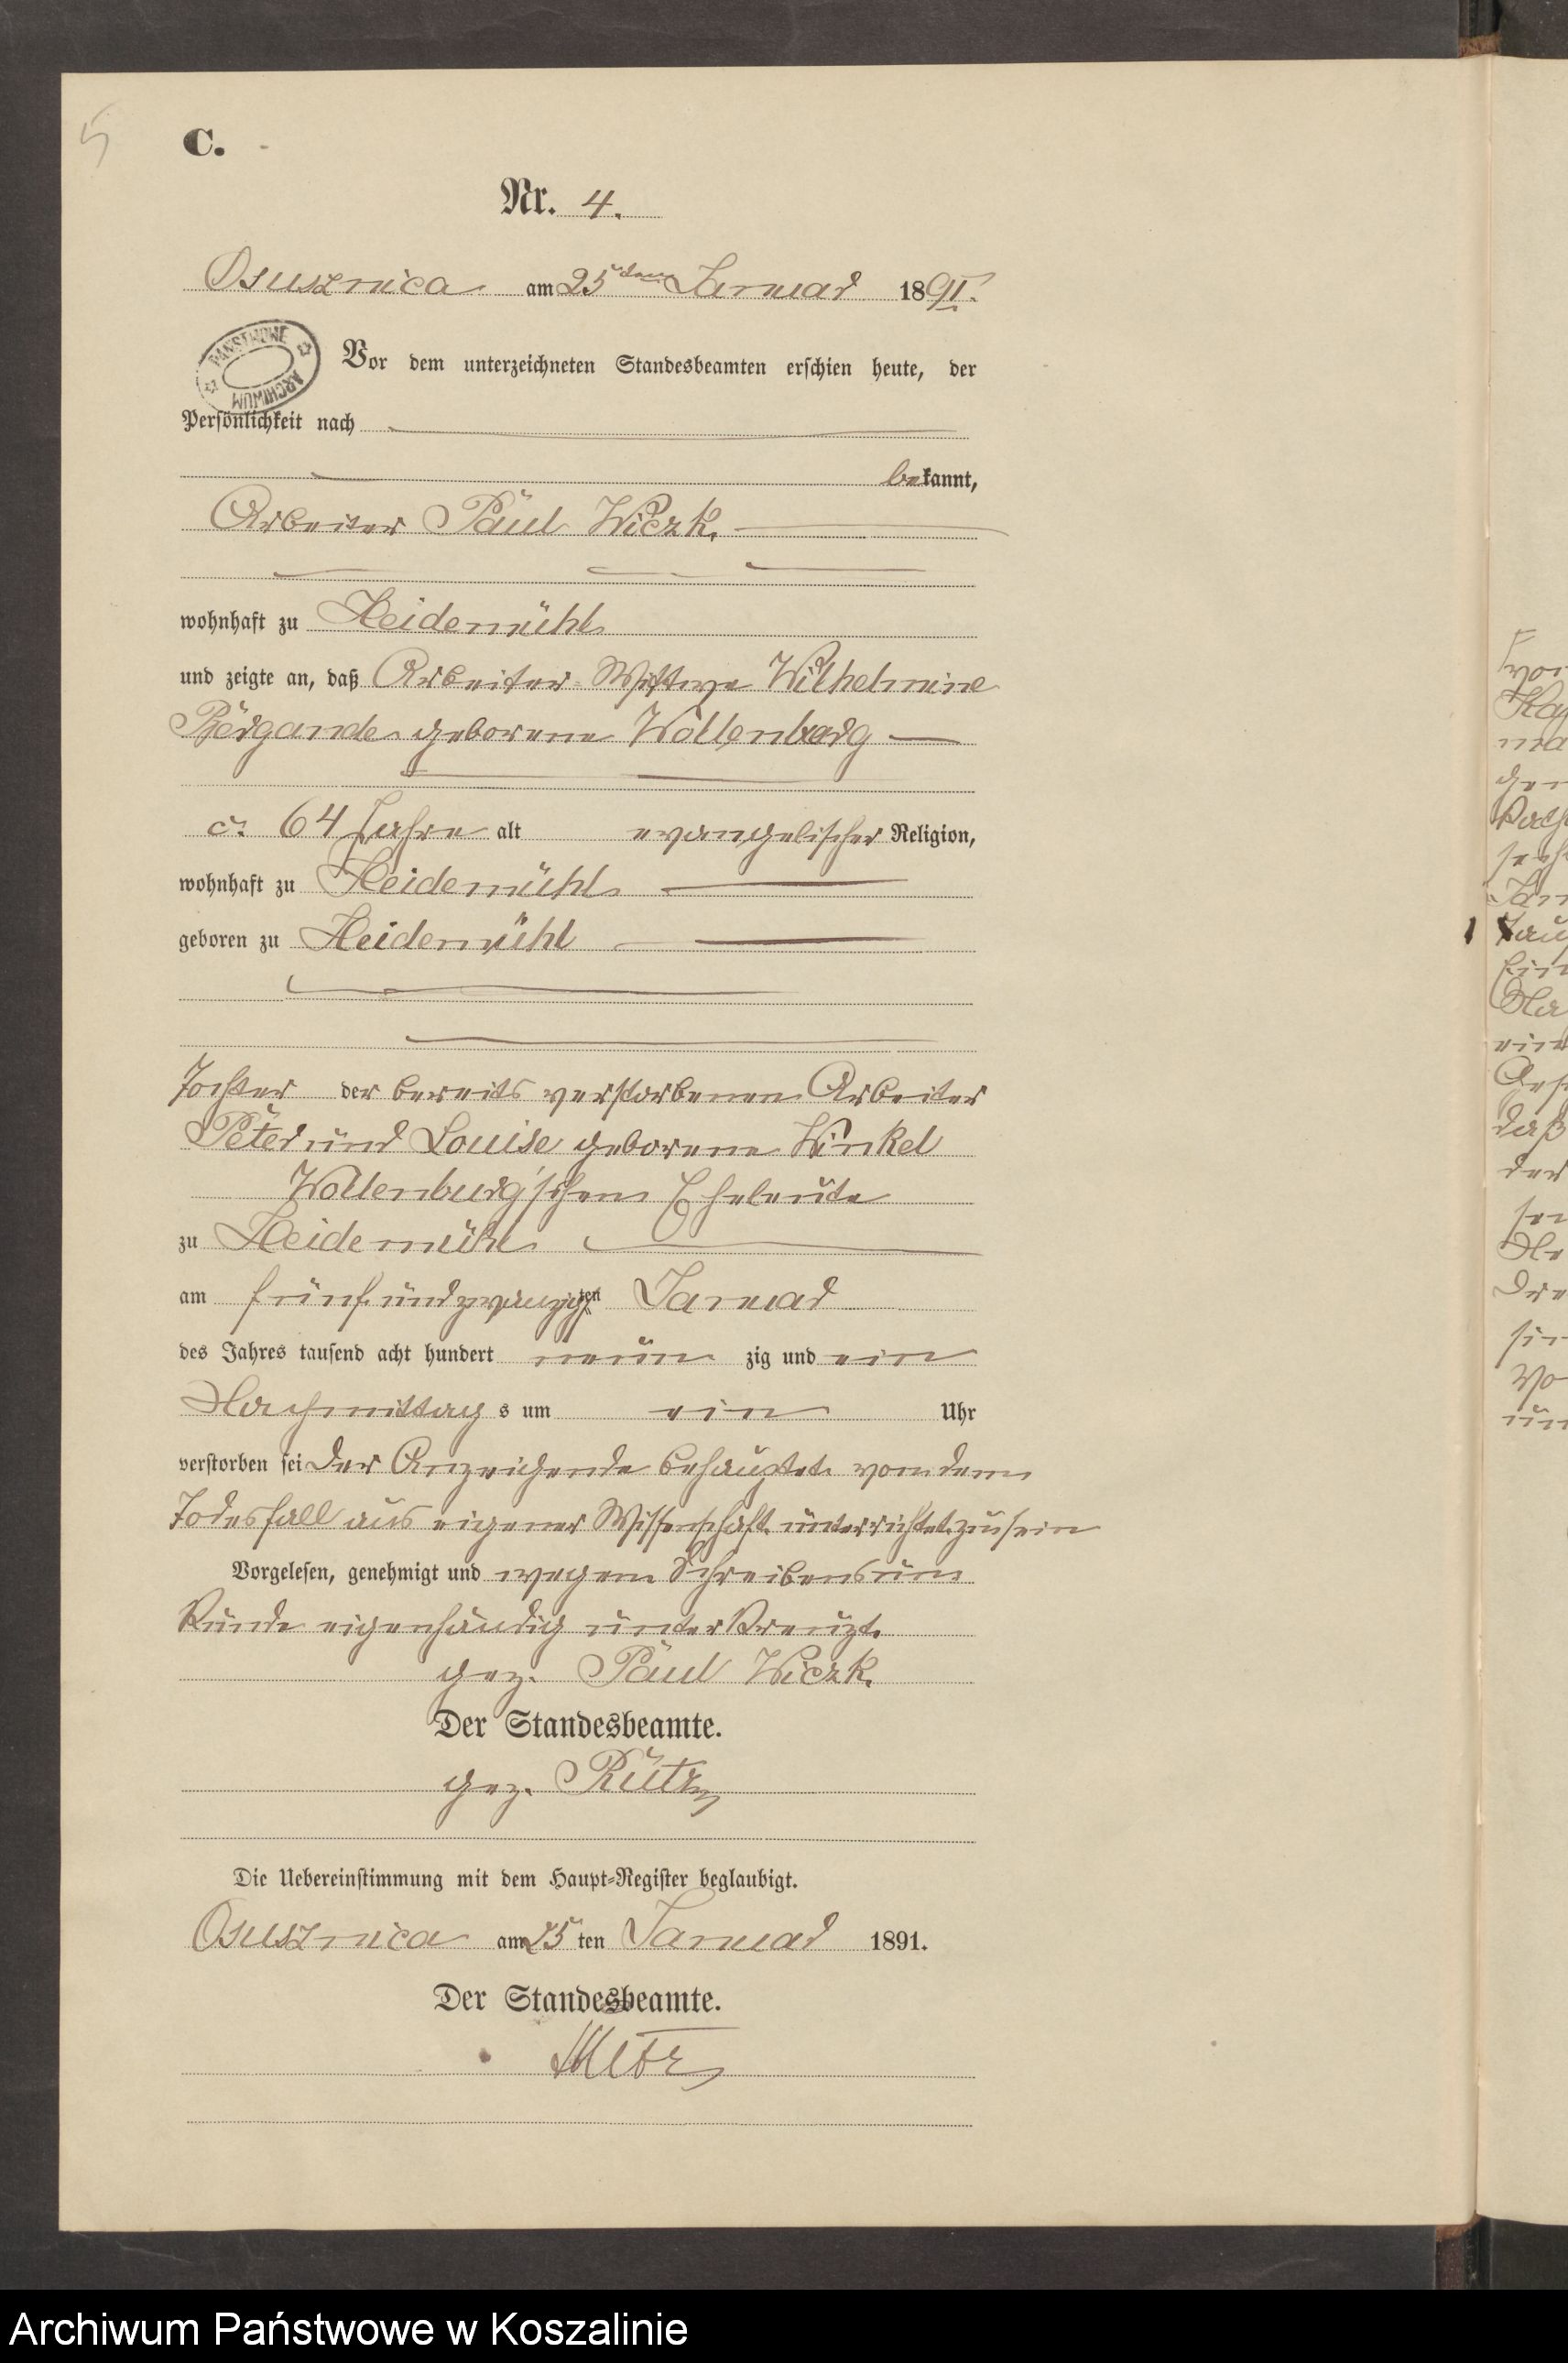 5
C.
Nr. 4.
Osusznica am 25ten Januar 1891.
PAŃSTWOWE ARCHIWUM
Vor dem unterzeichneten Standesbeamten erschien heute, der
Persönlichkeit nach
bekannt,
Arbeiter Paul Wiczk.
wohnhaft zu Heidemühl
und zeigte an, daß Arbeiter-Wittwe Wilhelmine
Bergande geborene Wollenberg
c. 64 Jahre alt evangelischer Religion,
wohnhaft zu Heidemühl
geboren zu Heidemühl
Tochter der bereits verstorbenen Arbeiter
Peter und Louise geborene Winkel
Wollenburg'schen Eheleute
zu Heidemühl
am fünfundzwanzigsten Januar
des Jahres tausend acht hundert neun zig und ein
Nachmittag s um ein Uhr
verstorben sei Der Anzeigende behauptet von dem
Todesfall aus eigener Wissenschaft unterrichtet zu sein
Vorgelesen, genehmigt und wegen Schreibensun
kunde eigenhändig unterkreuzt.
gez. Paul Wiczk.
Der Standesbeamte.
gez. Rütz
Die Uebereinstimmung mit dem Haupt-Register beglaubigt.
Osusznica am 25 ten Januar 1891.
Der Standesbeamte.
Archiwum Państwowe w Koszalinie